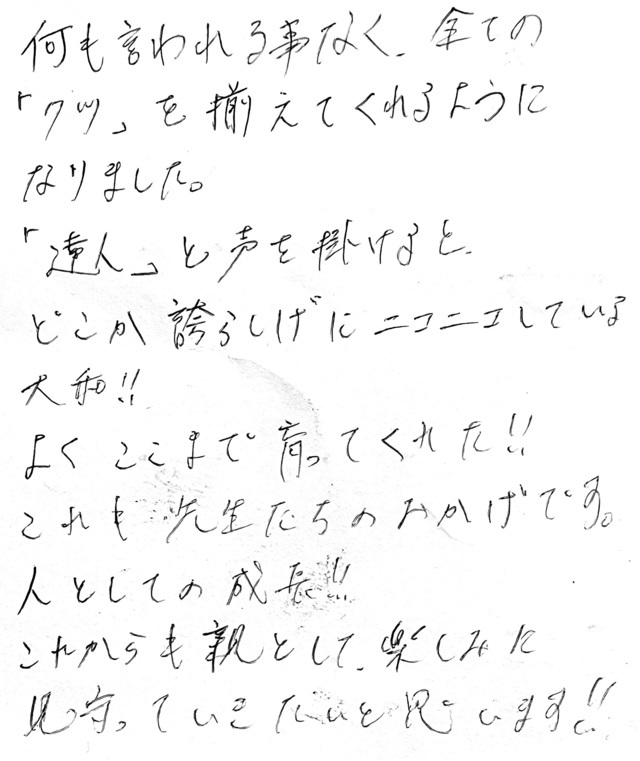 何も言われる事なく、全ての
「クツ」を揃えてくれるように
なりました。
「達人」と声を掛けると、
どこか誇らしげにニコニコしている
大和!!
よくここまで育ってくれた!!
これも先生たちのおかげです。
人としての成長!!
これからも親として、楽しみに
見守っていきたいと思います!!